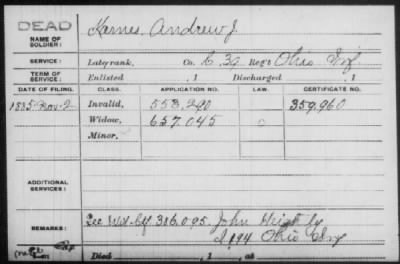 DEAD
NAME OF SOLDIER: Karnes, Andrew J.
SERVICE: Late rank, Co. C 30 Reg't Ohio Inf
TERM OF SERVICE: Enlisted , 1 Discharged , 1
DATE OF FILING. CLASS. APPLICATION NO. LAW. CERTIFICATE NO.
1885 Nov. 2 Invalid, 553,290 359,960
Widow, 657.045
Minor,
ADDITIONAL SERVICES:
REMARKS: See Wid. Ctf. 316.095. John
194 Ohio Inf
Died , 1 , at